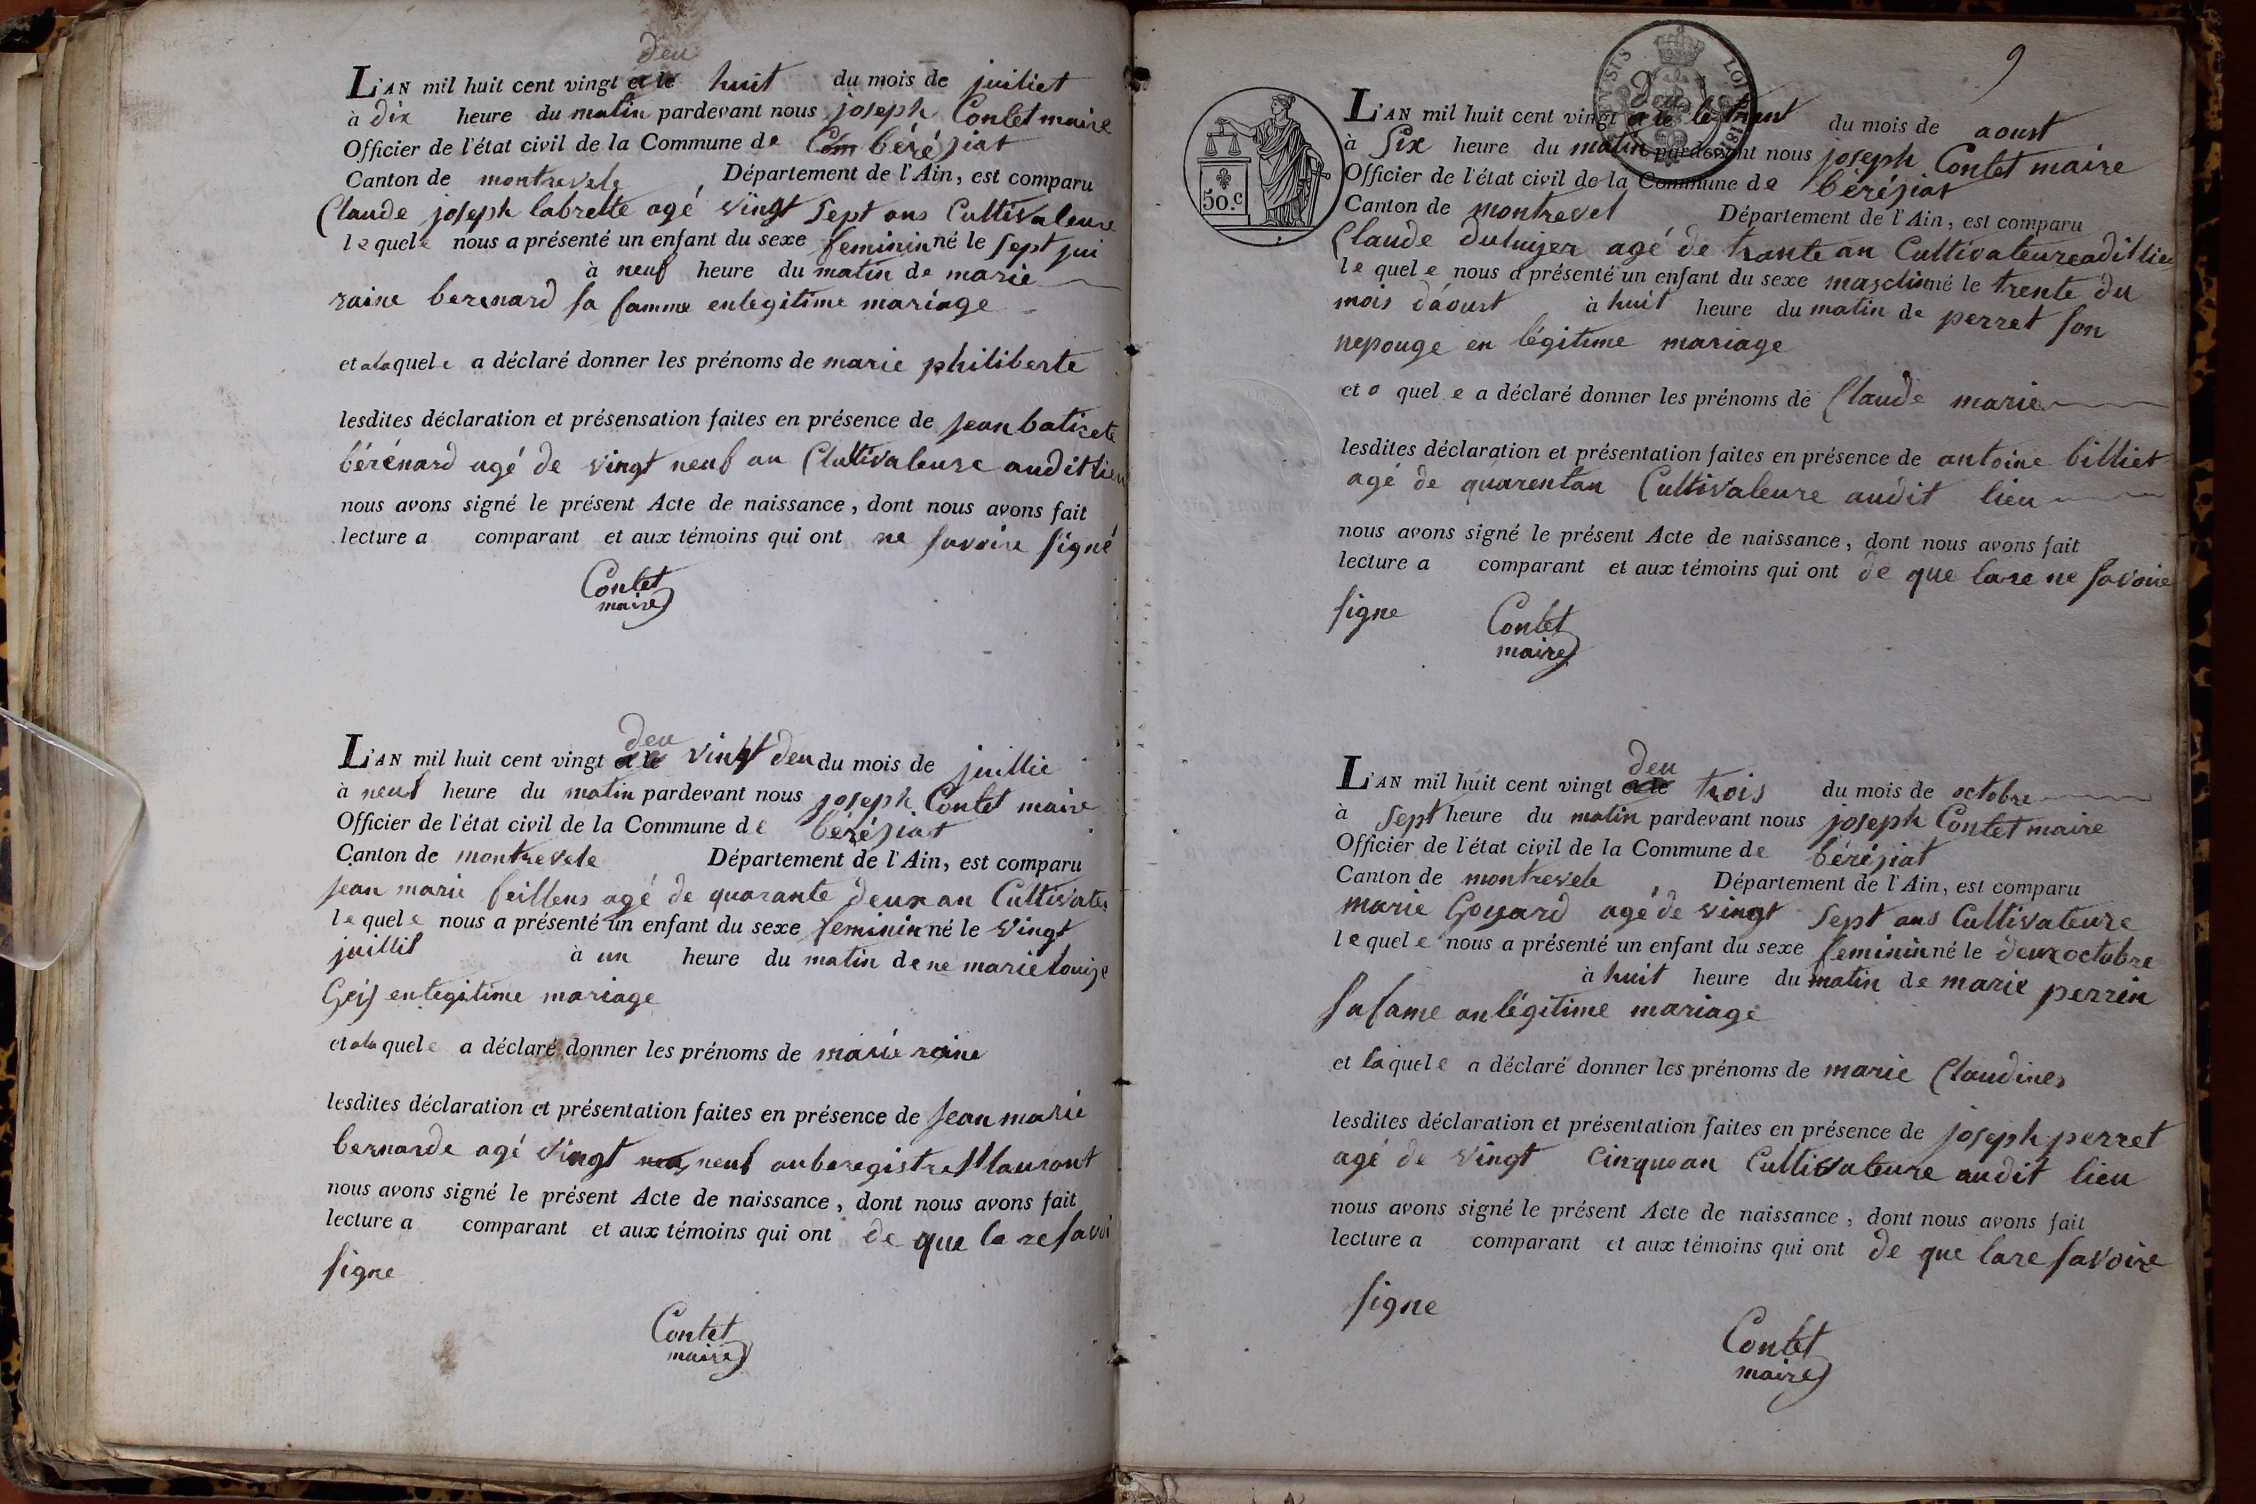 deu
L'AN mil huit cent vingt et le huit du mois de juilliet
à dix heure du matin pardevant nous joseph Contet maire
Officier de l'état civil de la Commune de Com béréziat
Canton de montrevele Département de l'Ain, est comparu
Claude joseph labrette agé vingt Sept ans Cultivaleure
lequele nous a présenté un enfant du sexe feminin né le Sept jui
à neuf heure du matin de marie
raine berenard sa famme enlegitime mariage
et alaquele a déclaré donner les prénoms de marie philiberte
lesdites déclaration et présensation faites en présence de jean batisete
bérénard agé de vingt neuf an Clultivaleure audit lieu
nous avons signé le présent Acte de naissance, dont nous avons fait
lecture a comparant et aux témoins qui ont ne savoire signé
Contet
maire
deu
L'AN mil huit cent vingt et le vingt deu du mois de juillie
à neuf heure du matin pardevant nous joseph Contet maire
Officier de l'état civil de la Commune de béréziat
Canton de montrevele Département de l'Ain, est comparu
jean marie feillens agé de quarante deux an Cultivateu
lequele nous a présenté un enfant du sexe feminin né le vingt
juillit à un heure du matin de ne marie louize
enlegitime mariage
et ala quele a déclaré donner les prénoms de marie raine
lesdites déclaration et présentation faites en présence de jean marie
bernarde agé vingt neuf auberegistre St lauront
nous avons signé le présent Acte de naissance, dont nous avons fait
lecture a comparant et aux témoins qui ont de que la re savoi
signe
Contet
maire
9
LOI
50.c
deu
L'AN mil huit cent vingt et le le trent du mois de aoust
à Six heure du matin pardevant nous joseph Contet maire
Officier de l'état civil de la Commune de béréziat
Canton de montrevel Département de l'Ain, est comparu
Claude agé de trante an Cultivateureaditlieu
lequele nous a présenté un enfant du sexe masclin né le trente du
mois d'aoust à huit heure du matin de perret son
nepouge en légitime mariage
et o quel e a déclaré donner les prénoms de Claude marie
lesdites déclaration et présentation faites en présence de antoine billiet
agé de quarentan Cultivaleure audit lieu
nous avons signé le présent Acte de naissance, dont nous avons fait
lecture a comparant et aux témoins qui ont de que lare ne savoire
signe
Contet
maire
deu
L'AN mil huit cent vingt et le trois du mois de octobre
à Sept heure du matin pardevant nous joseph Contet maire
Officier de l'état civil de la Commune de béréziat
Canton de montrevele Département de l'Ain, est comparu
marie Goyard agé de vingt Sept ans Cultivateure
lequele nous a présenté un enfant du sexe feminin né le deux octubre
à huit heure du matin de marie perrin
sa fame an légitime mariage
et laquele a déclaré donner les prénoms de marie Claudines
lesdites déclaration et présentation faites en présence de joseph perret
agé de vingt cinque an Cultivateure audit lieu
nous avons signé le présent Acte de naissance, dont nous avons fait
lecture a comparant et aux témoins qui ont de que lare savoire
signe
Contet
maire